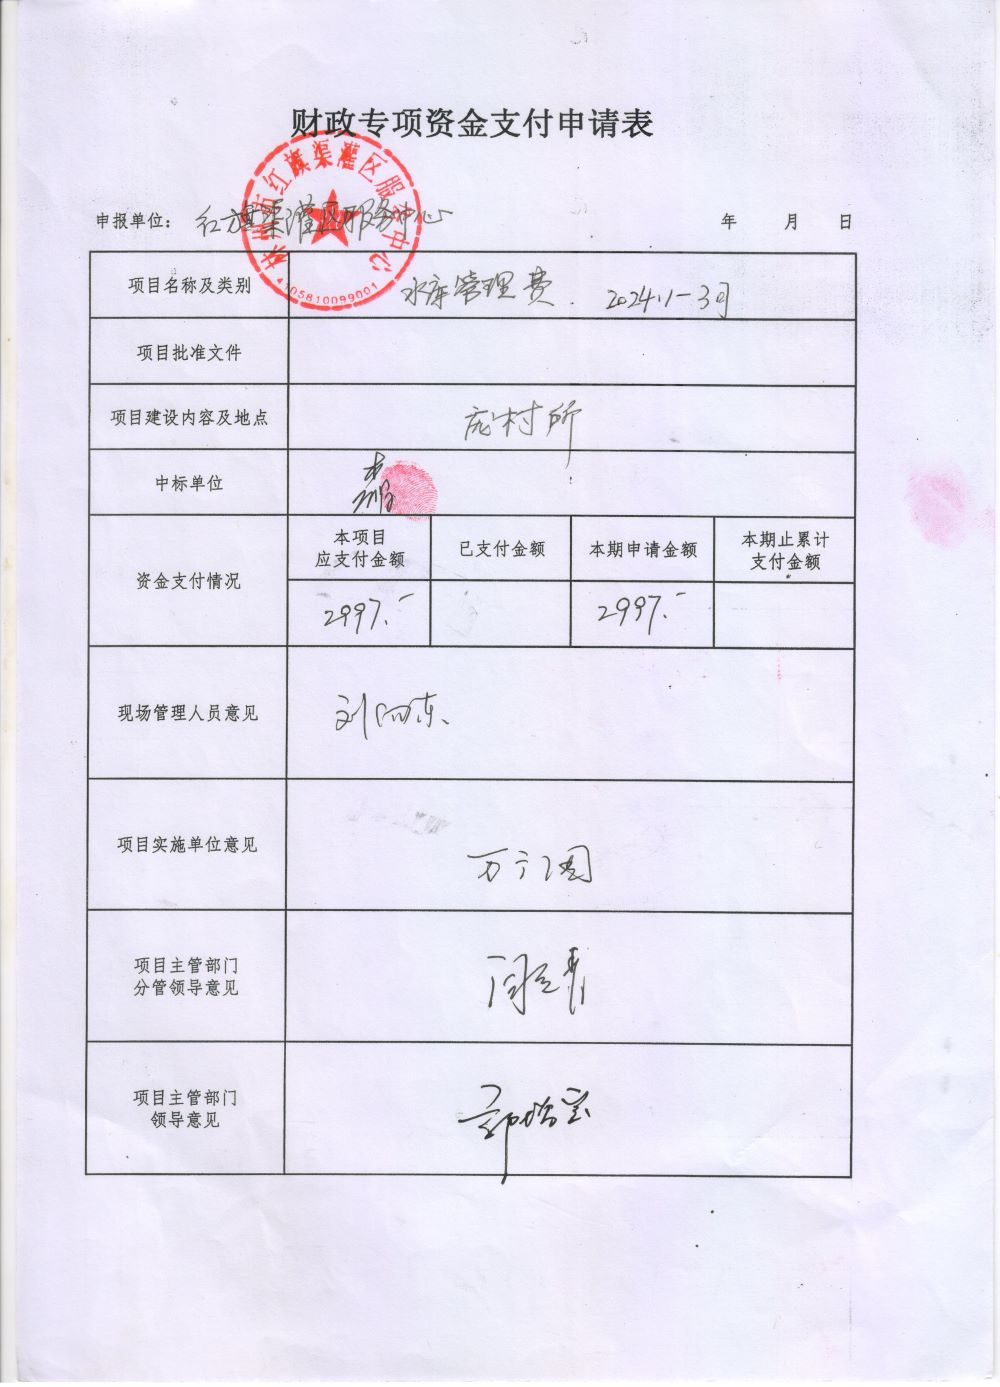 财政专项资金支付申请表
林州市红旗渠灌区服务中心
4105810099001
申报单位： 红旗渠灌区服务中心 年 月 日
项目名称及类别 水库管理费. 2024.1-3月
项目批准文件
项目建设内容及地点 庞村所
中标单位
资金支付情况
本项目
应支付金额
已支付金额
本期申请金额
本期止累计
支付金额
2997.- 2997.-
现场管理人员意见
项目实施单位意见
项目主管部门
分管领导意见
项目主管部门
领导意见